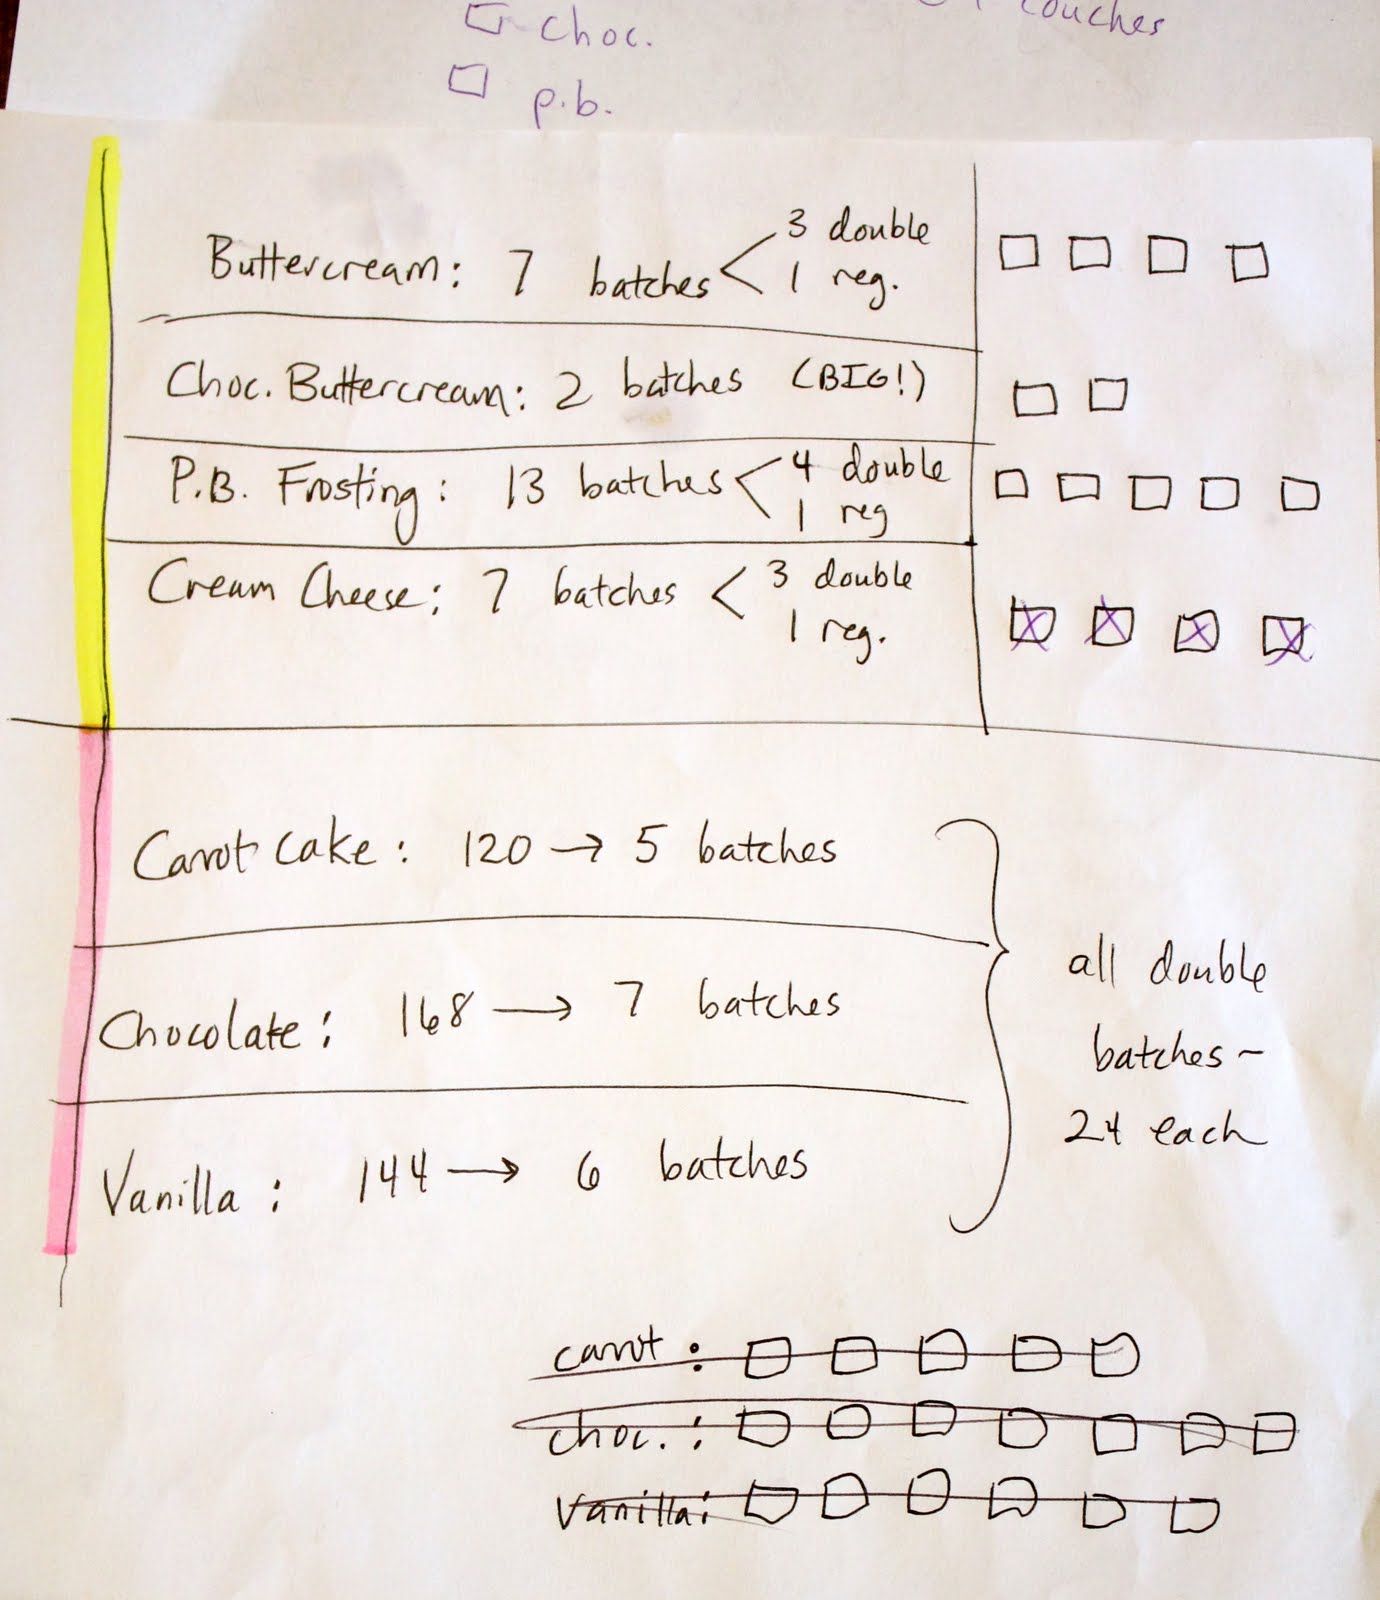 choc.
couches
p.b.
Buttercream: 7 batches < 3 double
1 reg.
Choc. Buttercream: 2 batches (BIG!)
P.B. Frosting: 13 batches < 4 double
1 reg
Cream Cheese: 7 batches < 3 double
1 reg.
Carrot Cake: 120 → 5 batches
Chocolate: 168 → 7 batches
Vanilla: 144 → 6 batches
all double
batches ~
24 each
carrot:
choc.:
Vanilla: